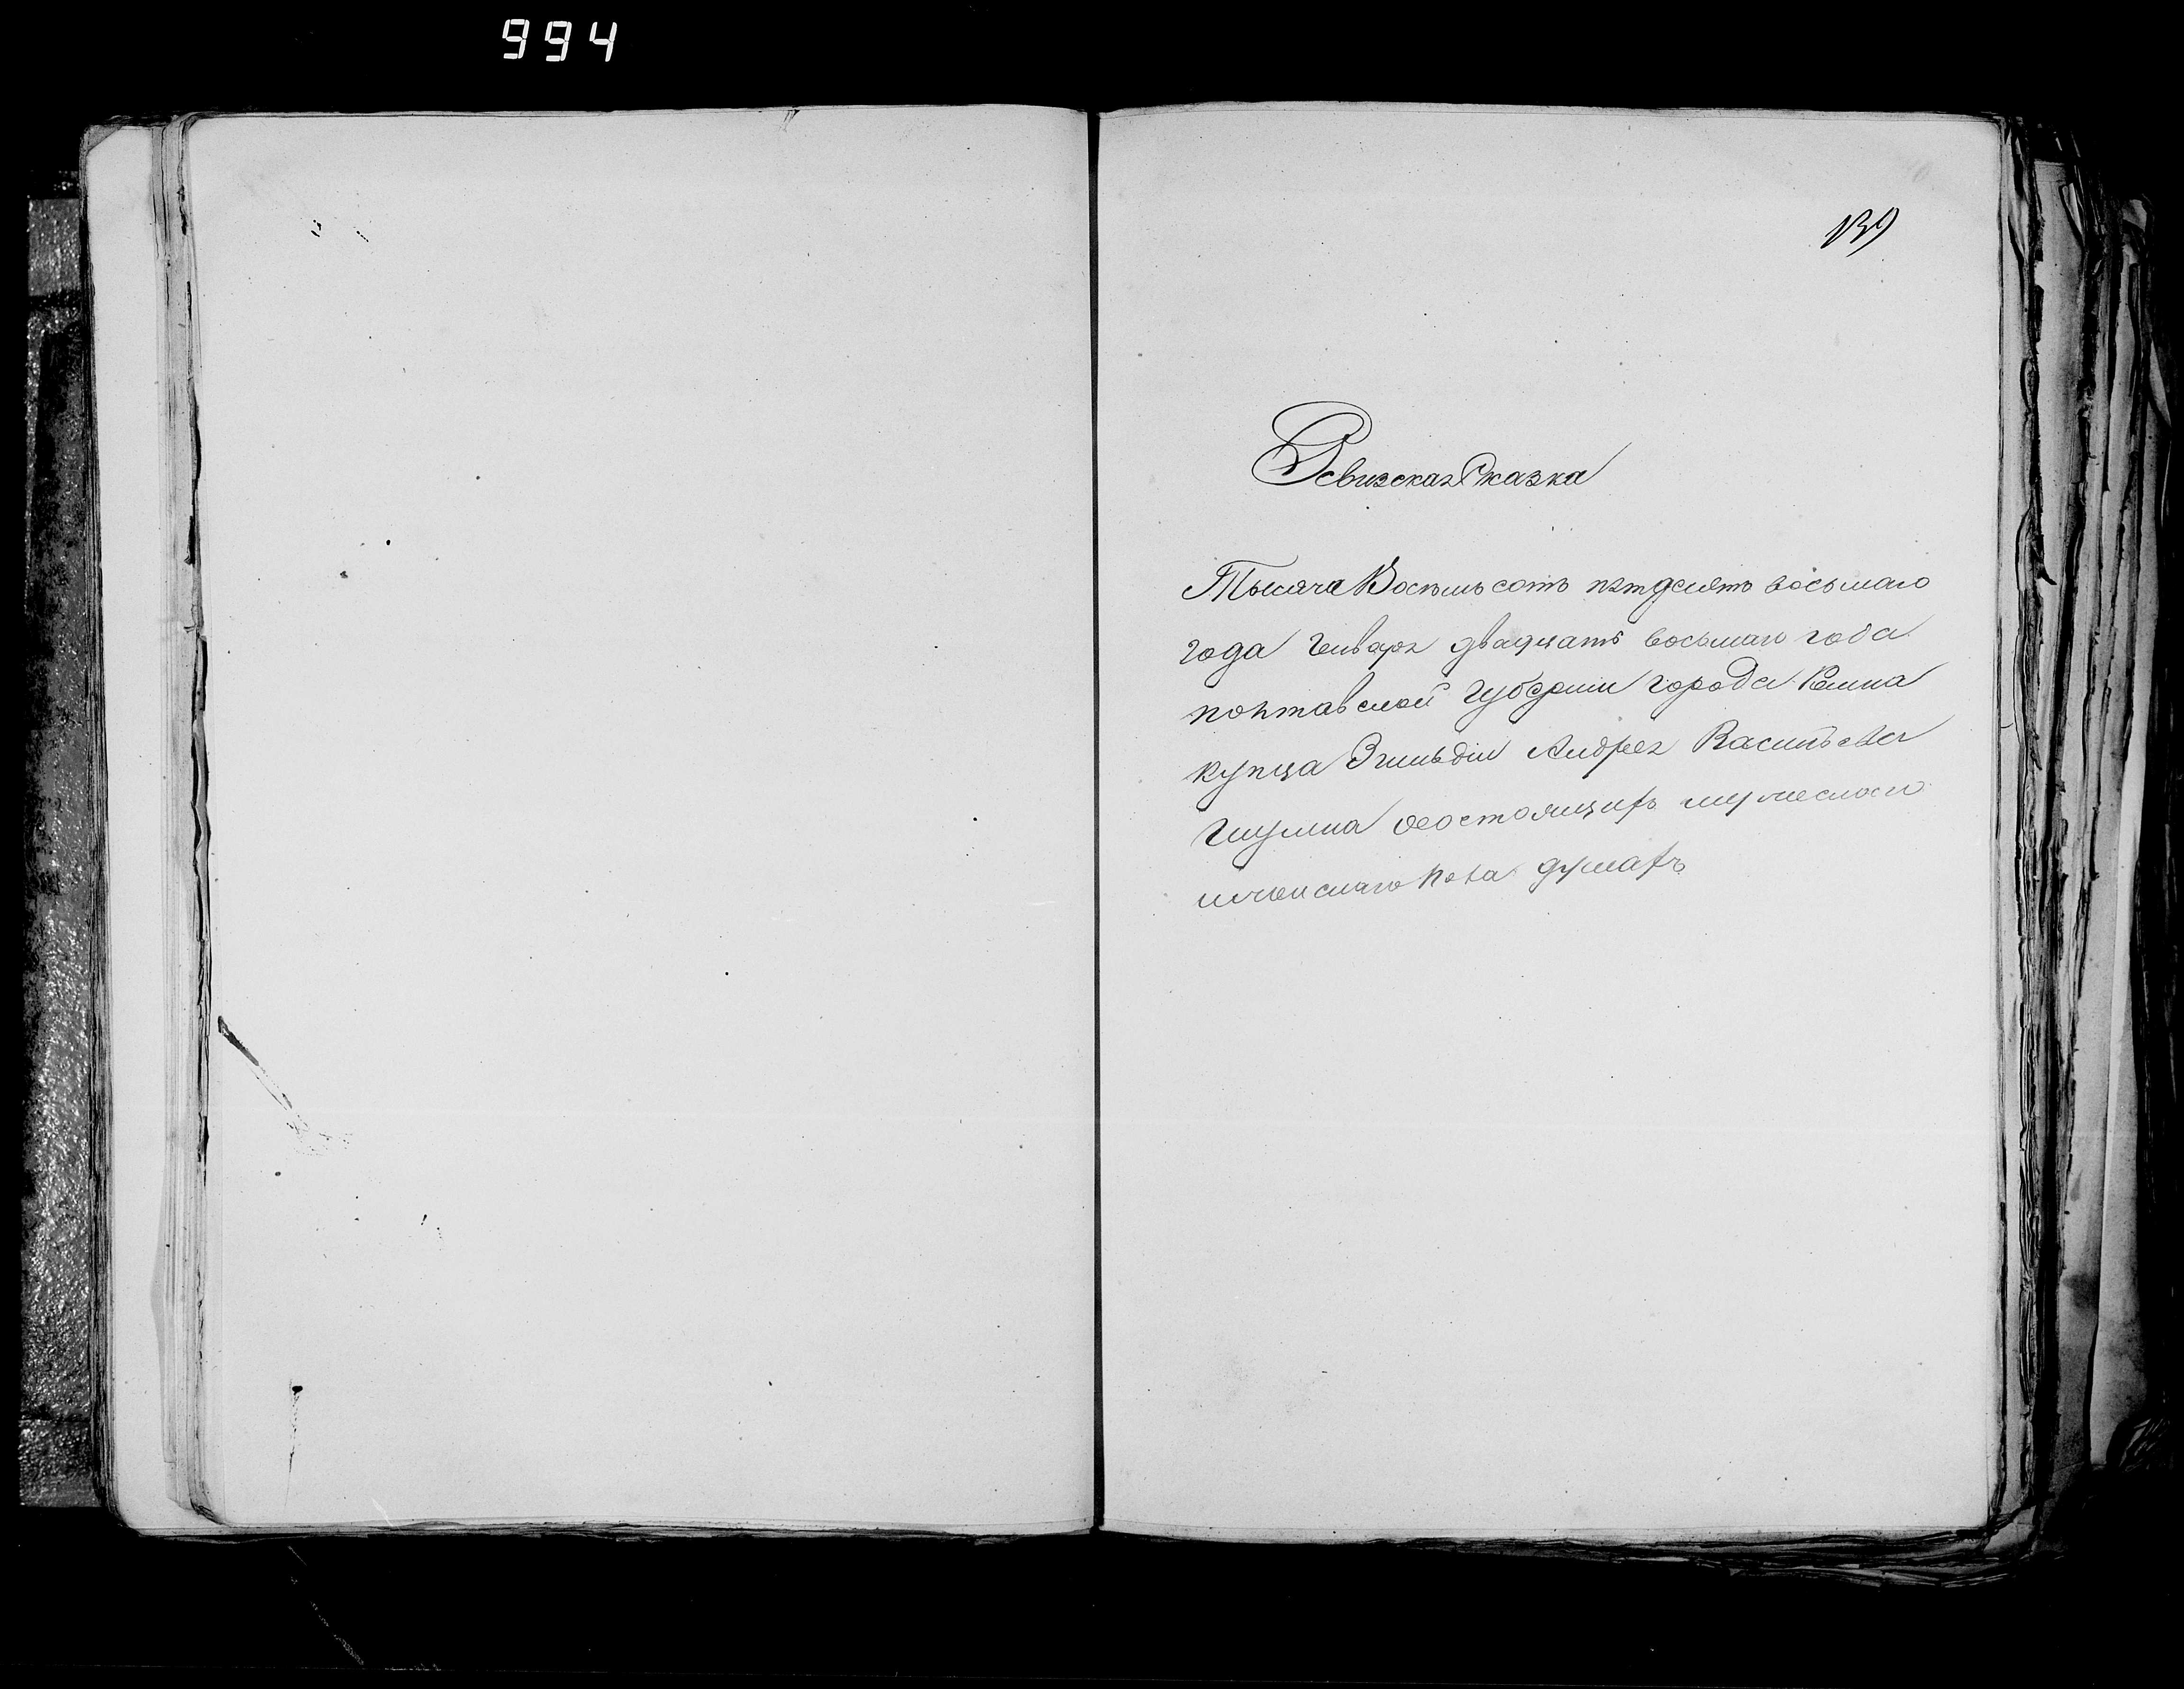 994
139
Ревизская Сказка
Тысяча Восемьсотъ пятдесятъ восьмаго
года Генваря двадцать восьмаго года
полтавской Губернии города Ромна
купца Андрея Васильева
состоящихъ мужескаго
пола душахъ